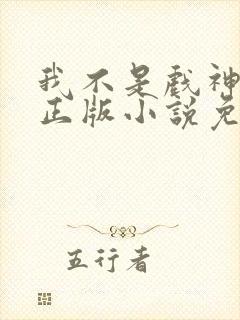 我不是戏神
正版小說免
五行者